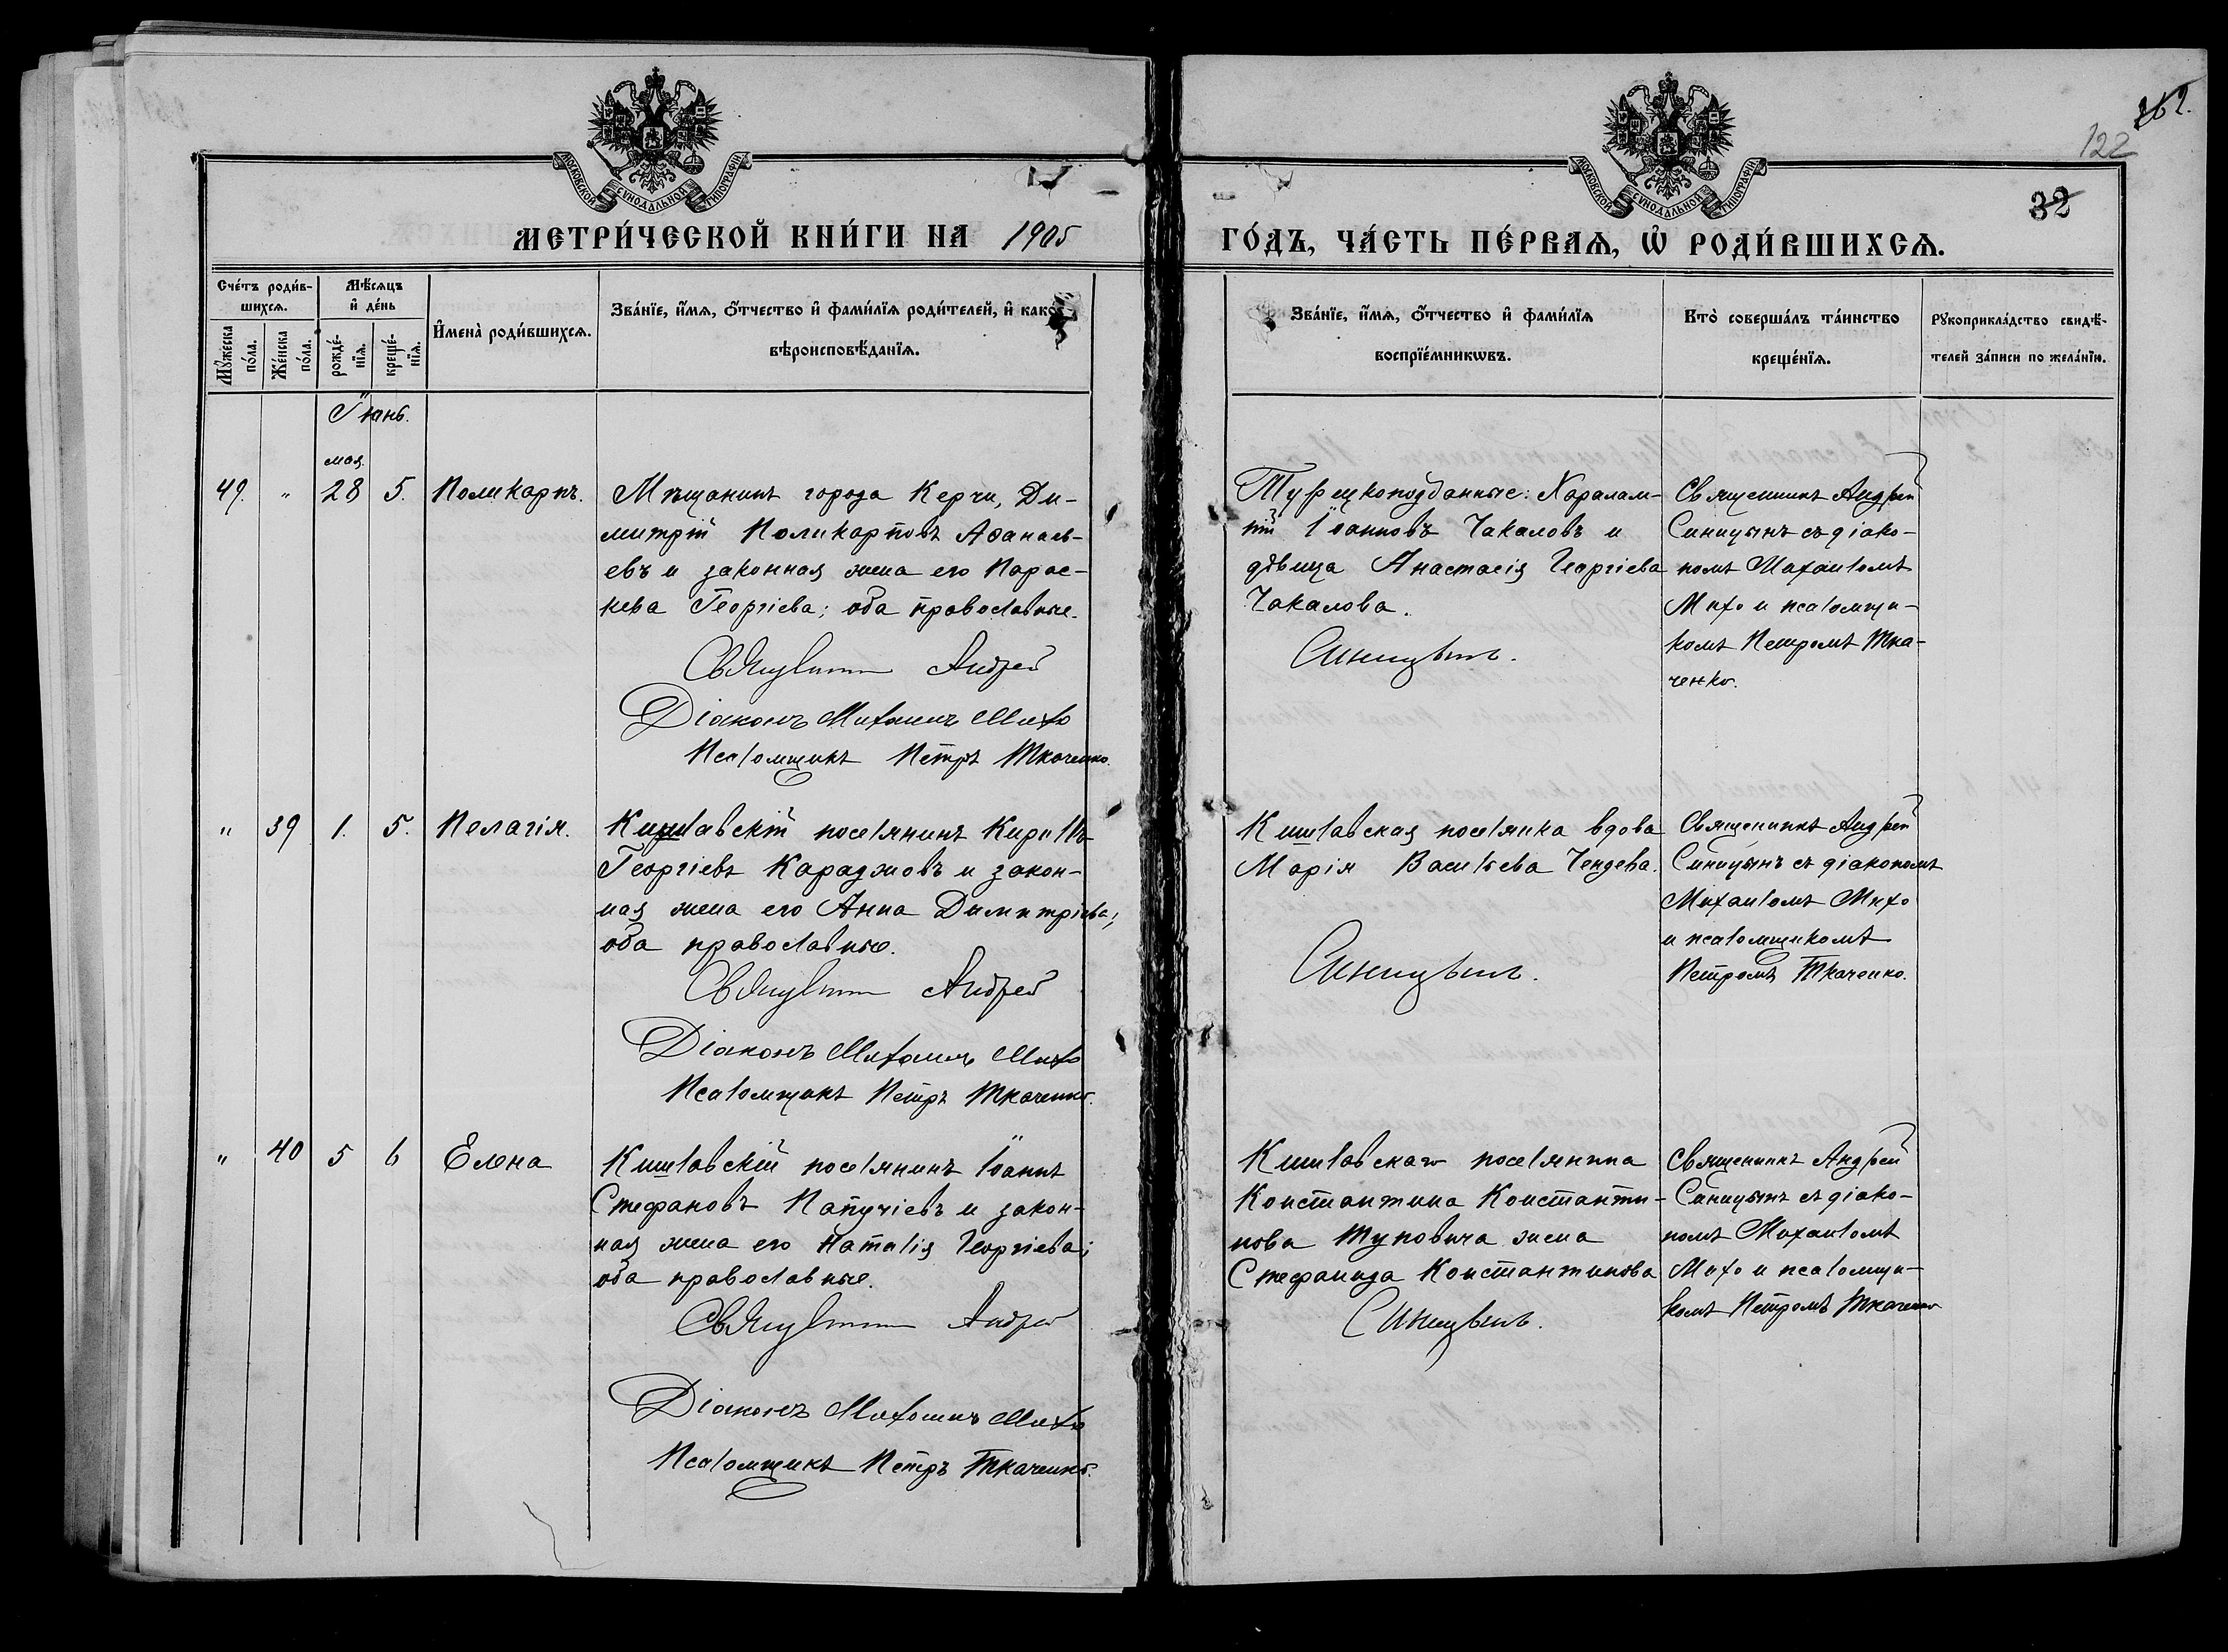 262.
122
32
МОСКОВСКОЙ СѴНОДАЛЬНОЙ ТИПОГРАФІИ
МОСКОВСКОЙ СѴНОДАЛЬНОЙ ТИПОГРАФІИ
МЕТРИ́ЧЕСКОЙ КНИ́ГИ НА 1905 ГО́ДЪ, ЧА́СТЬ ПЕ́РВАѦ, Ѡ҆ РОДИ́ВШИХСѦ.
Сче́тъ роди́в-
шихсѧ.
Мꙋ́жеска по́ла.
Же́нска по́ла.
Мѣ́сѧцъ
и҆ де́нь
рожде́-
нїѧ.
креще́-
нїѧ.
И҆мена̀ роди́вшихсѧ.
Зва́нїе, и҆́мѧ, ѻ҆́тчество и҆ фами́лїѧ роди́телей, и҆ како́
вѣроисповѣ́данїѧ.
Зва́нїе, и҆́мѧ, ѻ҆́тчество и҆ фами́лїѧ
воспрїе́мникѡвъ.
Кто̀ соверша́лъ та́инство
креще́нїѧ.
Рꙋкоприкла́дство свидѣ́-
телей за́писи по жела́нїю.
Іюнь.
мая.
49. " 28 5. Поликарпъ.
Мѣщанинъ города Керчи, Ди-
митрій Поликарповъ Аѳанась-
евъ и законная жена его Парас-
кева Георгіева; оба православные.
Священникъ Андрей
Діаконъ Михаилъ Михо
Псаломщикъ Петръ Ткаченко.
Турецкоподданные: Харалам-
пій Іоанновъ Чакаловъ и
дѣвица Анастасія Георгіева
Чакалова.
Синицынъ.
Священникъ Андрей
Синицынъ съ діако-
номъ Михаиломъ
Михо и псаломщи-
комъ Петромъ Тка-
ченко.
" 39 1. 5. Пелагія.
Кишлавскій поселянинъ Кириллъ
Георгіевъ Караджовъ и закон-
ная жена его Анна Димитріева;
оба православные.
Священникъ Андрей
Діаконъ Михаилъ Михо
Псаломщикъ Петръ Ткаченко.
Кишлавская поселянка вдова
Марія Васильева Чендева.
Синицынъ.
Священникъ Андрей
Синицынъ съ діакономъ
Михаиломъ Михо
и псаломщикомъ
Петромъ Ткаченко.
" 40 5 6 Елена
Кишлавскій поселянинъ Іоаннъ
Стефановъ Папучіевъ и закон-
ная жена его Наталія Георгіева;
оба православные.
Священникъ Андрей
Діаконъ Михаилъ Михо
Псаломщикъ Петръ Ткаченко.
Кишлавскаго поселянина
Константина Константи-
нова Туповича жена
Стефанида Константинова
Синицынъ.
Священникъ Андрей
Синицынъ съ діако-
номъ Михаиломъ
Михо и псаломщи-
комъ Петромъ Ткаченко